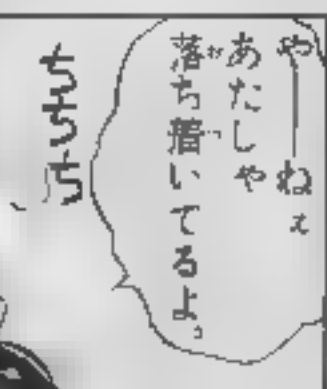 や――ねぇ
あたしゃ
落ち着いてるよ。
ちちち